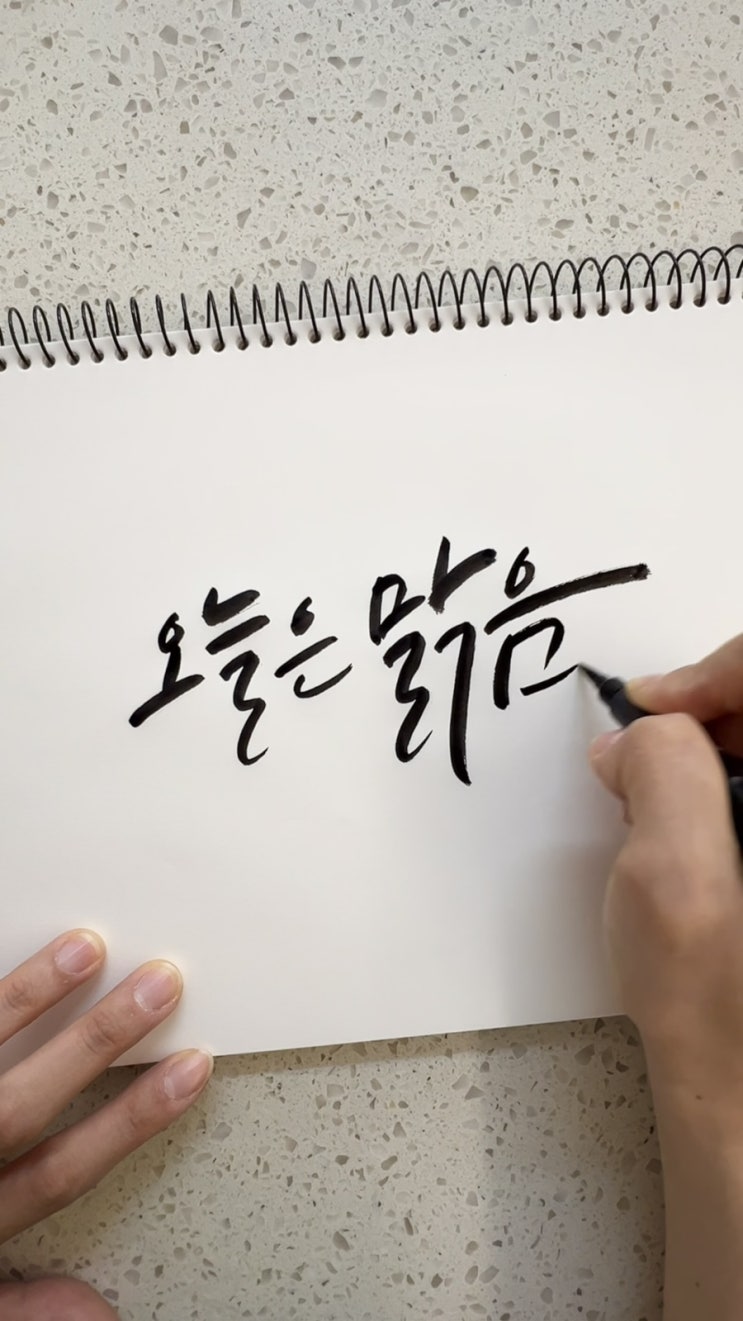 오늘은 맑음